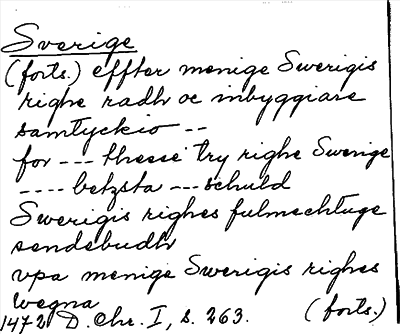 Sverige
(forts.) effter menige Swerigis
righe radh oc inbyggiare
samtyckio --
for --- thesse try righe Swerige
---- betzsta --- schuld
Swerigis righes fulmechtuge
sendebudh
vpa menige Swerigis righes
wegna
1472 D. Chr. I, s. 263. (forts.)